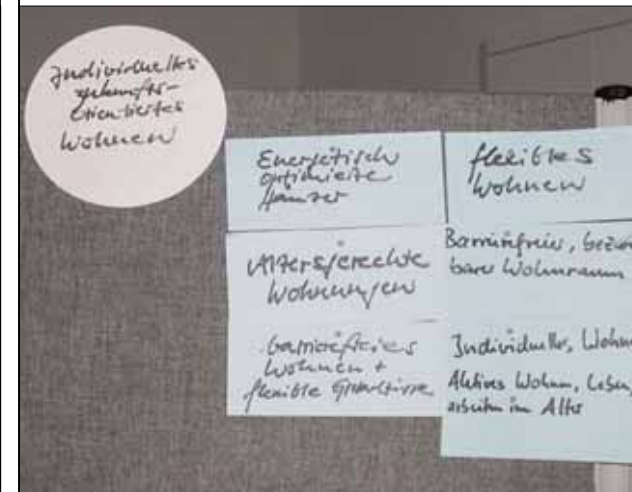 Individuelles
zukunfts-
orientiertes
Wohnen
Energetisch
optimierte
Häuser
flexibles
Wohnen
Altersgerechte
Wohnungen
Barrierefreier, bezahl
barer Wohnraum
barrierefreies
Wohnen +
flexible Grundrisse
Individuelles, Wohn
Aktives Wohnen, Leben,
arbeiten im Alter